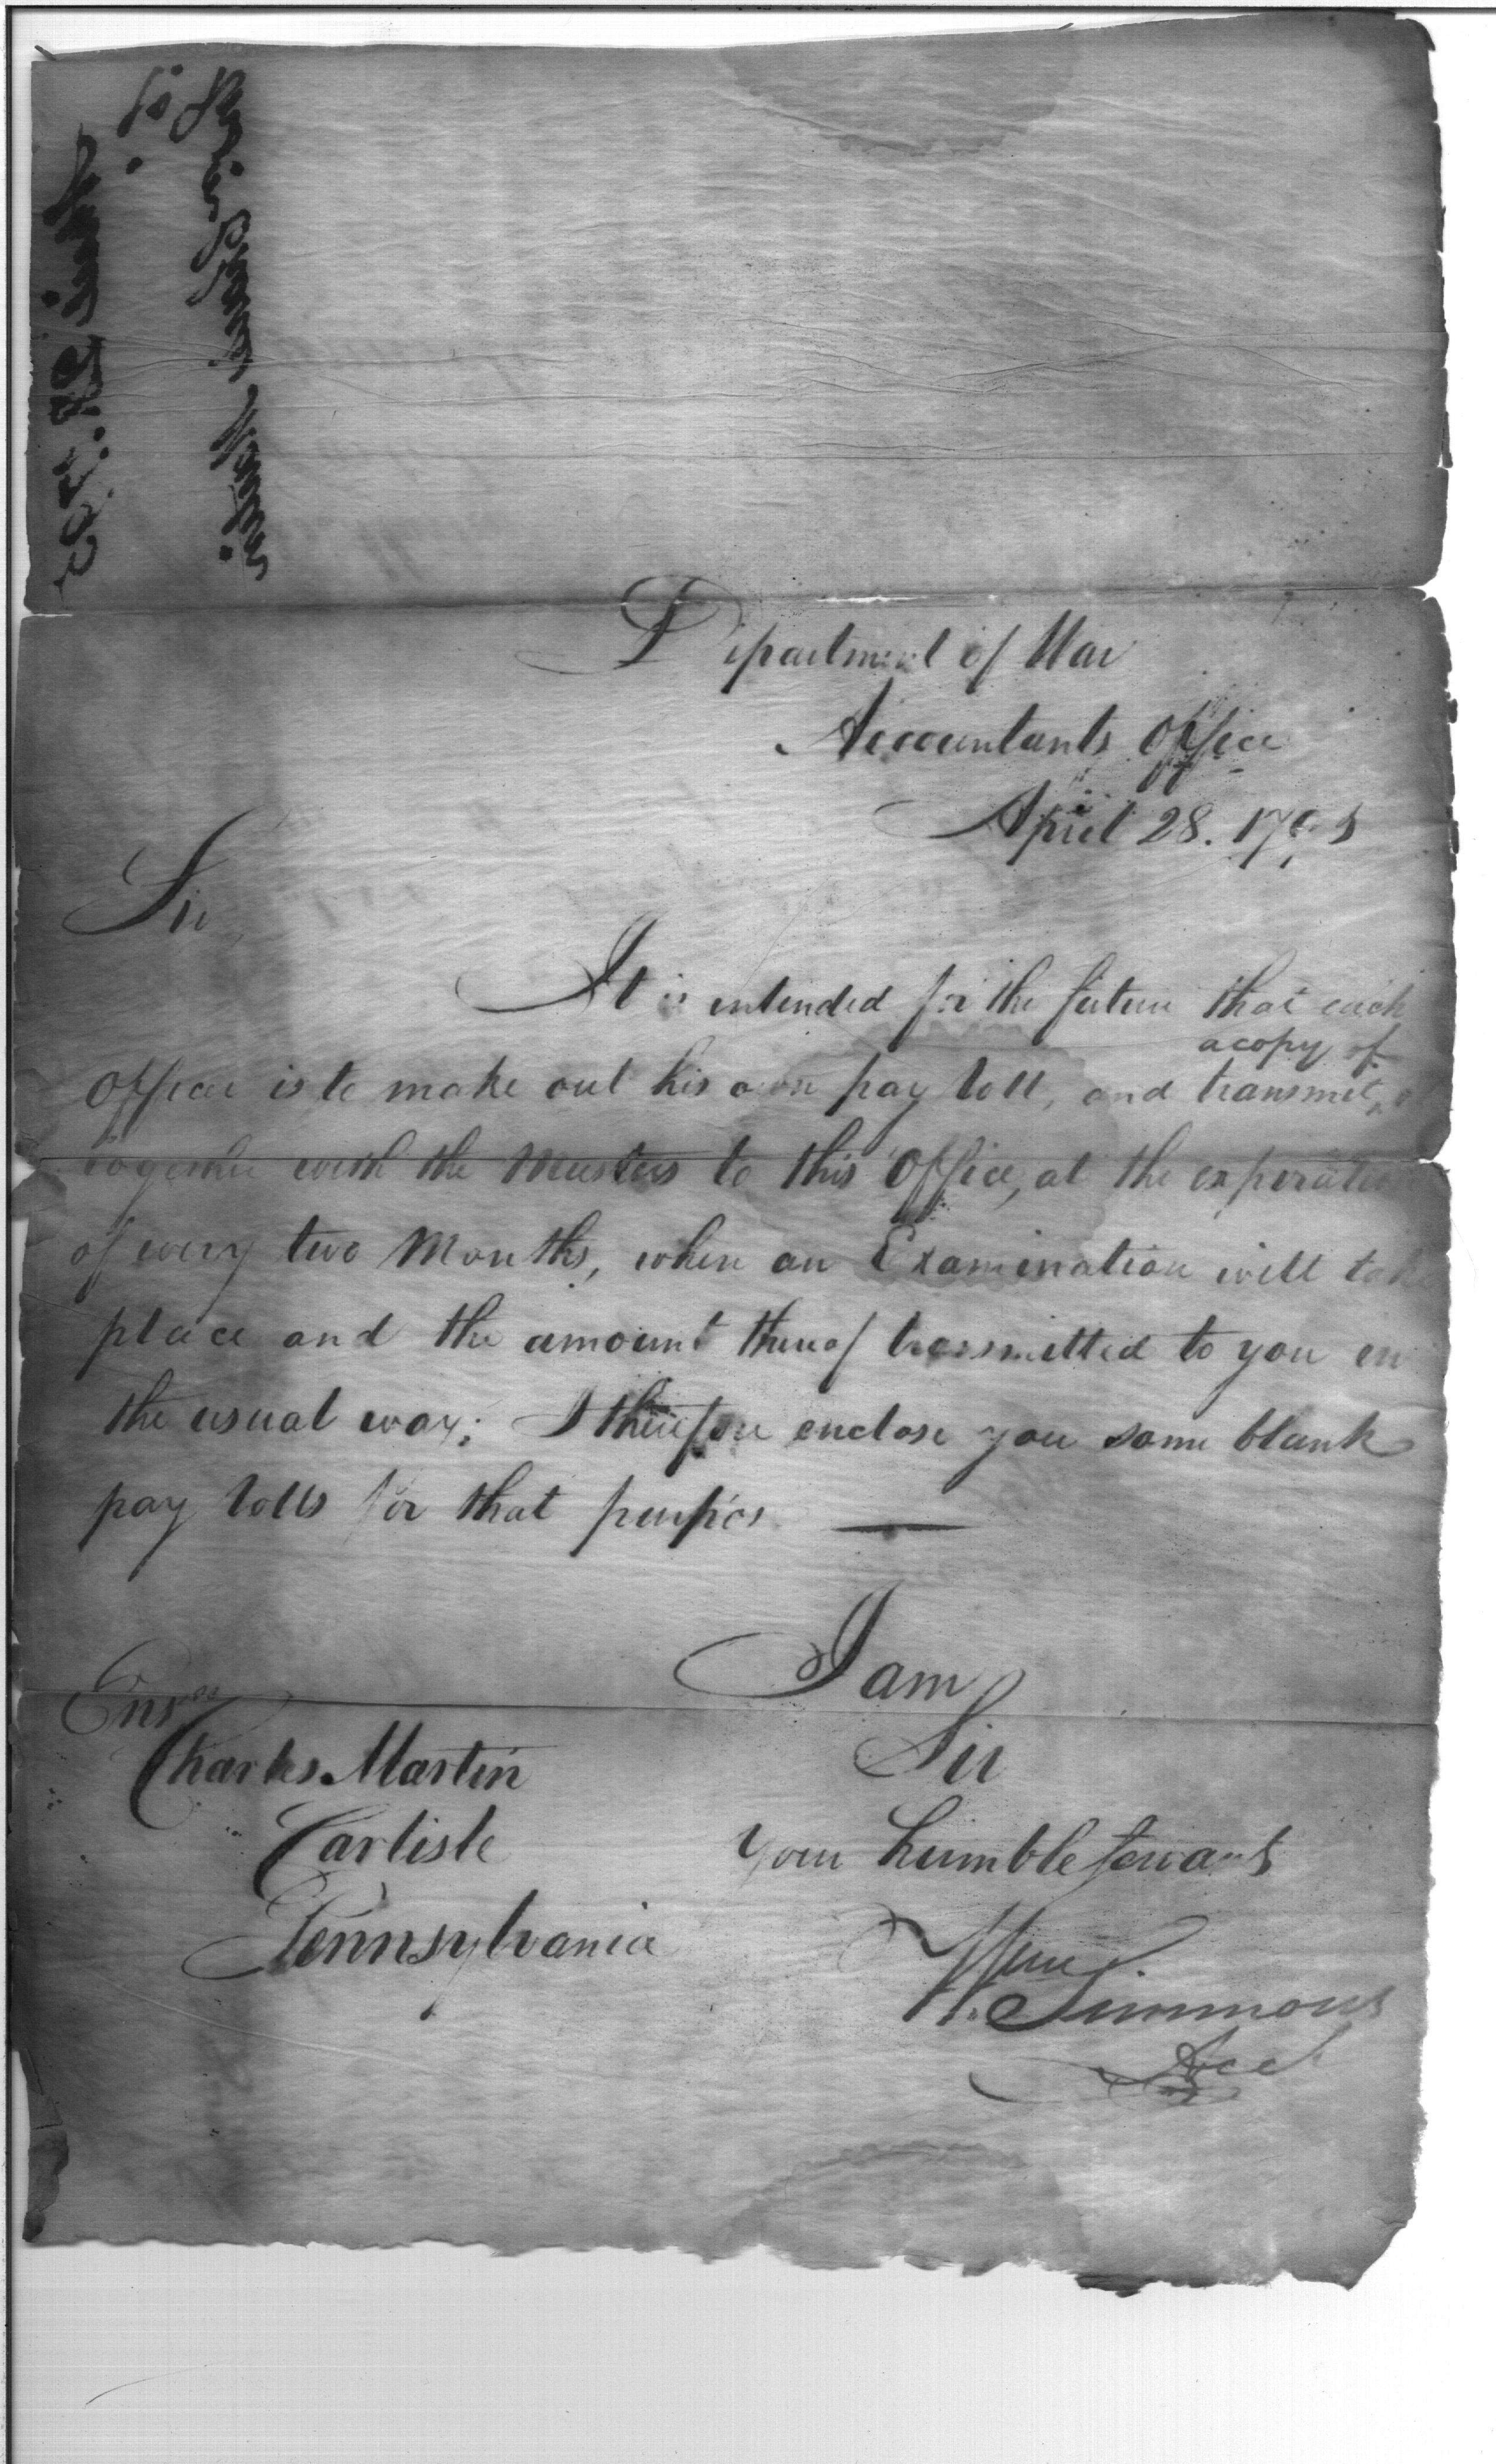 Department of War
Accountants Office
April 28. 1795
Sir,
It is intended for the future that each
Officer is to make out his own pay roll, and transmit, a copy of
together with the Musters to this Office, at the expiration
of every two Months, when an Examination will take
place and the amount thereof transmitted to you in
the usual way; I therefore enclose you some blank
pay rolls for that purpose
I am
Sir
Your humble servant
Wm Simmons
Acct
Ensn
Charles Martin
Carlisle
Pennsylvania